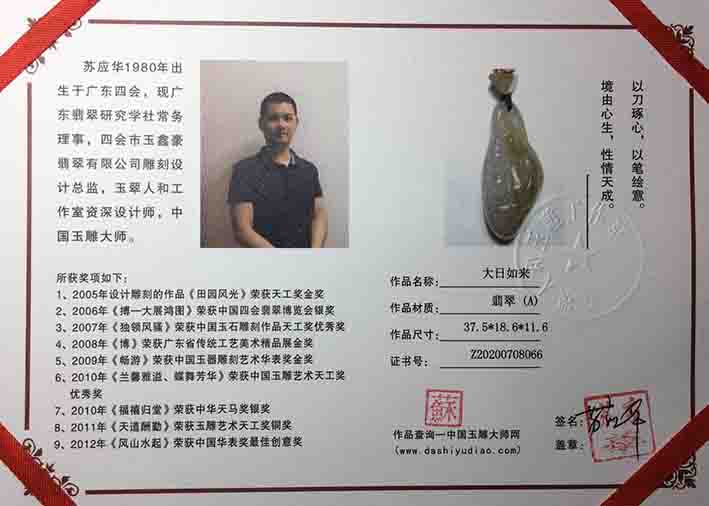 苏应华1980年出
生于广东四会，现广
东翡翠研究学社常务
理事，四会市玉鑫豪
翡翠有限公司雕刻设
计总监，玉翠人和工
作室资深设计师，中
国玉雕大师。
以刀琢心，以笔绘意。
境由心生，性情天成。
所获奖项如下：
1、2005年设计雕刻的作品《田园风光》荣获天工奖金奖
2、2006年《搏一大展鸿图》荣获中国四会翡翠博览会银奖
3、2007年《独领风骚》荣获中国玉石雕刻作品天工奖优秀奖
4、2008年《博》荣获广东省传统工艺美术精品展金奖
5、2009年《畅游》荣获中国玉器雕刻艺术华表奖金奖
6、2010年《兰馨雅溢、蝶舞芳华》荣获中国玉雕艺术天工奖
优秀奖
7、2010年《福禧归堂》荣获中华天马奖银奖
8、2011年《天道酬勤》荣获玉雕艺术天工奖铜奖
9、2012年《风山水起》荣获中国华表奖最佳创意奖
作品名称： 大日如来
作品材质： 翡翠 (A)
作品尺寸： 37.5*18.6*11.6
证书号： Z20200708066
蘇
作品查询一中国玉雕大师网
(www.dashiyudiao.com)
签名：
盖章：